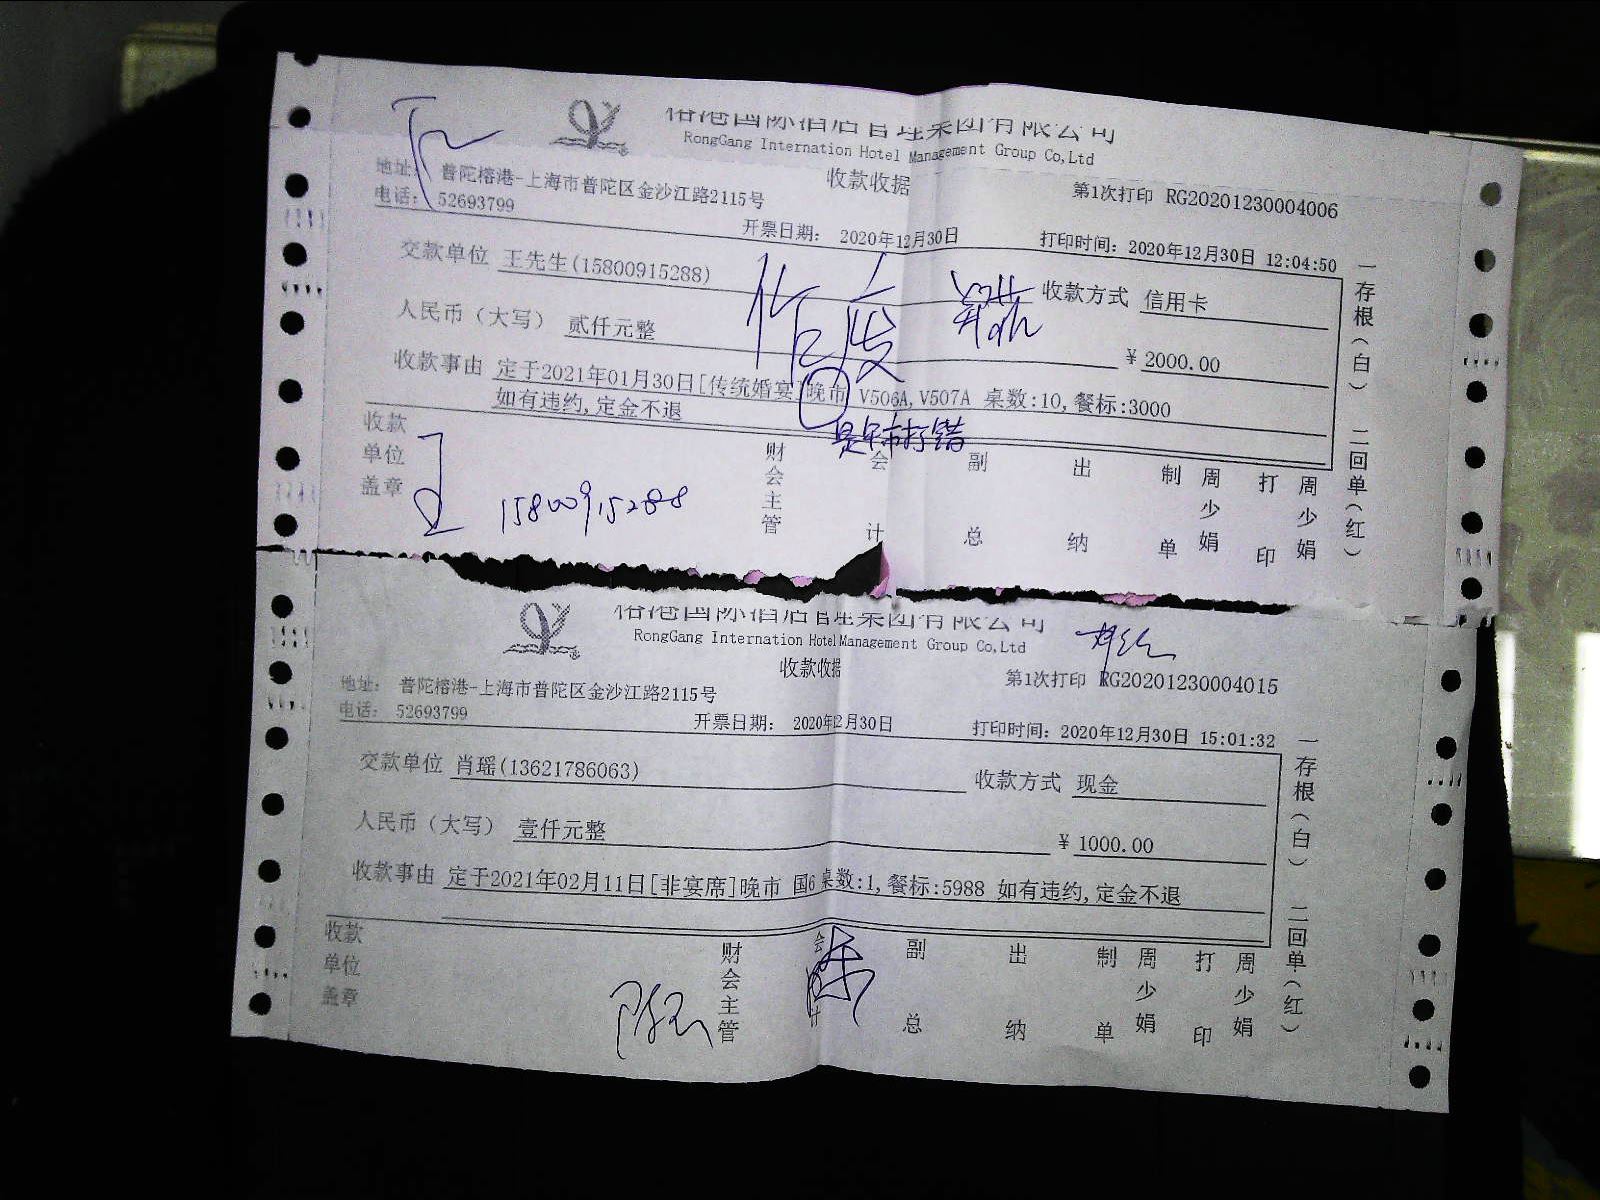 榕港国际酒店管理集团有限公司
RongGang Internation Hotel Management Group Co,Ltd
收款收据
地址: 普陀榕港-上海市普陀区金沙江路2115号
第1次打印 RG20201230004006
电话: 52693799
开票日期: 2020年12月30日
打印时间: 2020年12月30日 12:04:50
交款单位 王先生(15800915288)
收款方式 信用卡
作废
人民币（大写） 贰仟元整
¥ 2000.00
收款事由 定于2021年01月30日[传统婚宴]晚市 V506A,V507A 桌数:10,餐标:3000
如有违约,定金不退
是午市打错
收款单位盖章
王 15800915288
财会主管 会计 副总 出纳 制单 周少娟 打印 周少娟
一存根(白) 二回单(红)
榕港国际酒店管理集团有限公司
RongGang Internation Hotel Management Group Co,Ltd
收款收据
地址: 普陀榕港-上海市普陀区金沙江路2115号
第1次打印 RG20201230004015
电话: 52693799
开票日期: 2020年12月30日
打印时间: 2020年12月30日 15:01:32
交款单位 肖瑶(13621786063)
收款方式 现金
人民币（大写） 壹仟元整
¥ 1000.00
收款事由 定于2021年02月11日[非宴席]晚市 国6 桌数:1,餐标:5988 如有违约,定金不退
收款单位盖章
财会主管 会计 副总 出纳 制单 周少娟 打印 周少娟
一存根(白) 二回单(红)